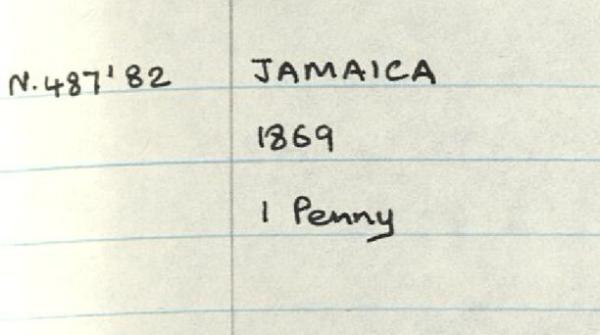 N.487'82 JAMAICA
1869
1 Penny